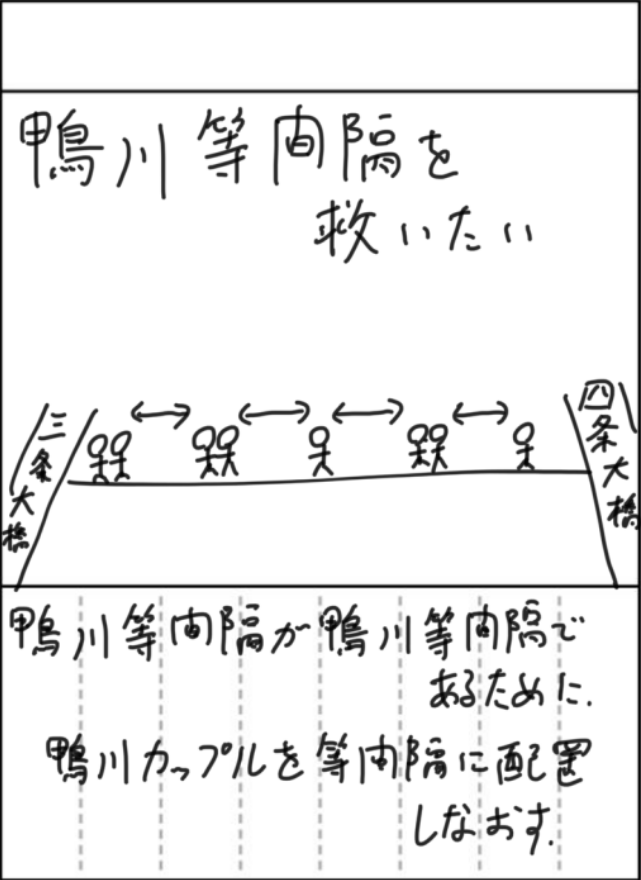 鴨川等間隔を
救いたい
三条大橋
四条大橋
鴨川等間隔が鴨川等間隔で
あるために.
鴨川カップルを等間隔に配置
しなおす.